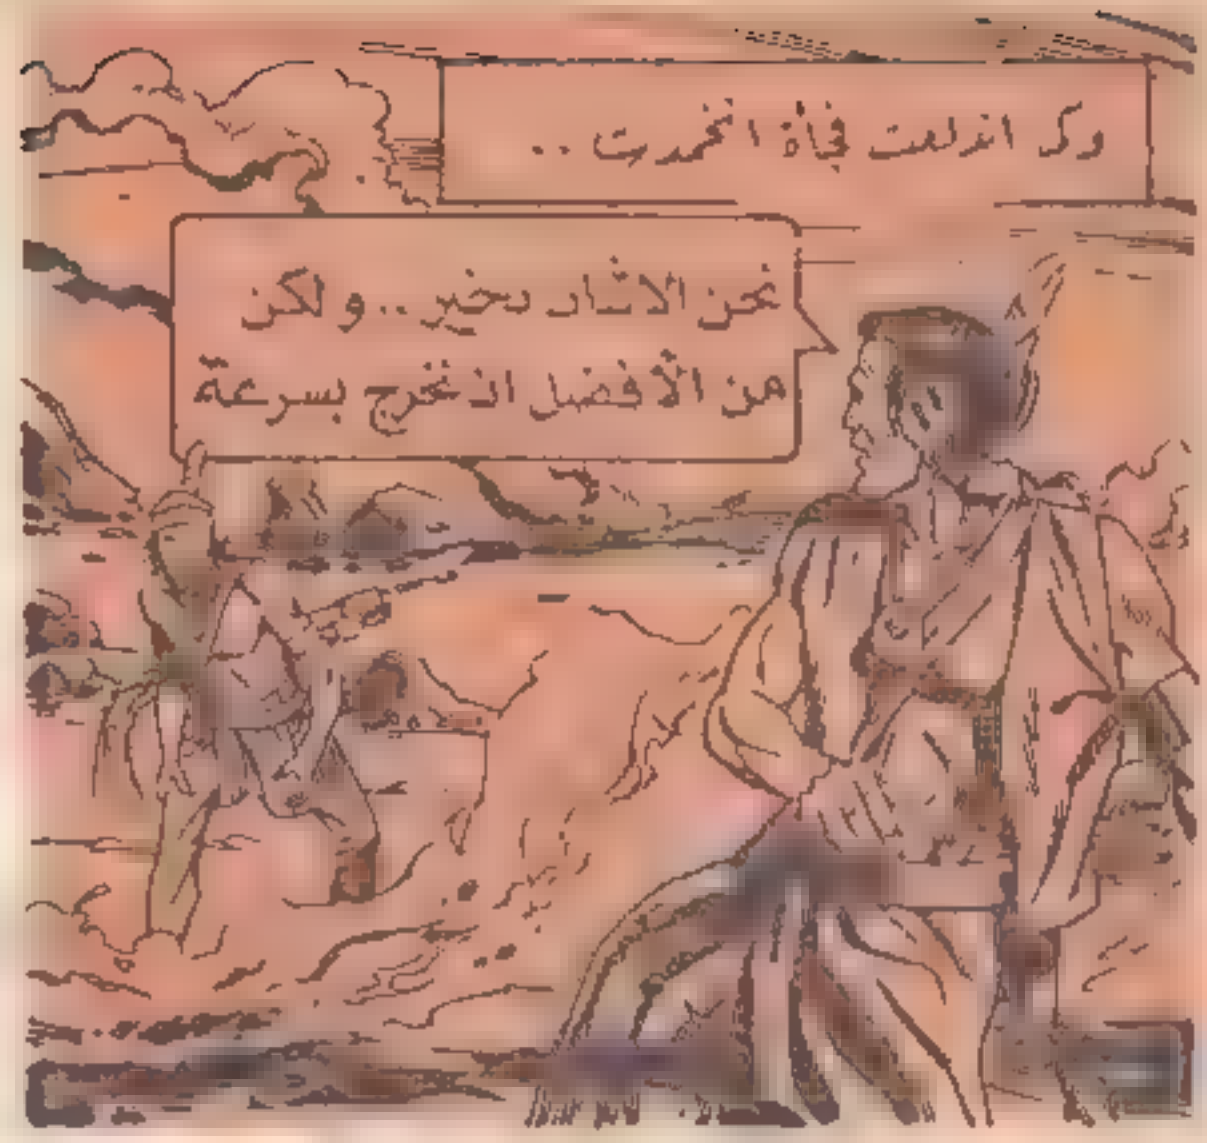 وكما اندلعت فجأة انحمدت ..
نحن الاثنان بخير .. و لكن
من الأفضل ان نخرج بسرعة